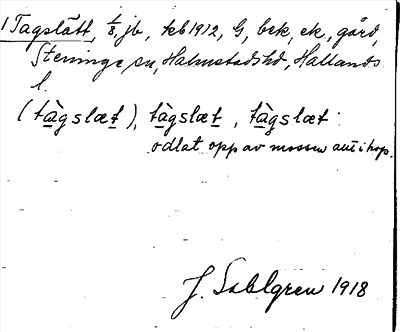 1 Tagslätt, 1/8, jb, hb 1912, G, bek, ek, gård,
Steninge sn, Halmstads hd, Hallands
l.
(tàgslæt), tàgslæt, tàgslæt
odlat opp av mossen allihop.
J. Sahlgren 1918